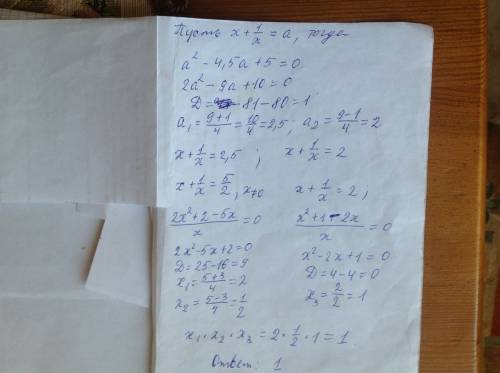 Пусть x + 1/x = a, тогда
a² - 4,5a + 5 = 0
2a² - 9a + 10 = 0
D = 81 - 80 = 1
a₁ = (9+1)/4 = 10/4 = 2,5; a₂ = (9-1)/4 = 2
x + 1/x = 2,5 ; x + 1/x = 2
x + 1/x = 5/2, x≠0 x + 1/x = 2;
(2x² + 2 - 5x)/x = 0 (x² + 1 - 2x)/x = 0
2x² - 5x + 2 = 0 x² - 2x + 1 = 0
D = 25 - 16 = 9 D = 4 - 4 = 0
x₁ = (5+3)/4 = 2 x₃ = 2/2 = 1
x₂ = (5-3)/4 = 1/2
x₁ · x₂ · x₃ = 2 · 1/2 · 1 = 1
Ответ: 1